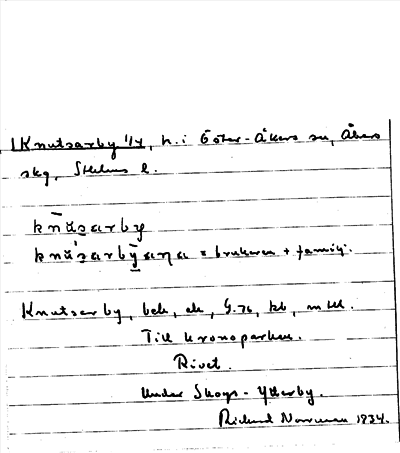 Knutsarby 1/4, h. i Öster-Åkers sn, Åkers
skg, Sthlms l.
knūsarby
knū́sarbȳaɳa = brukaren + familj.
Knutsarby, bok, ek, G.76, kb, mtl.
Till kronoparken.
Rivet.
Under Skogs-Ytterby.
Rickard Norrman 1934.